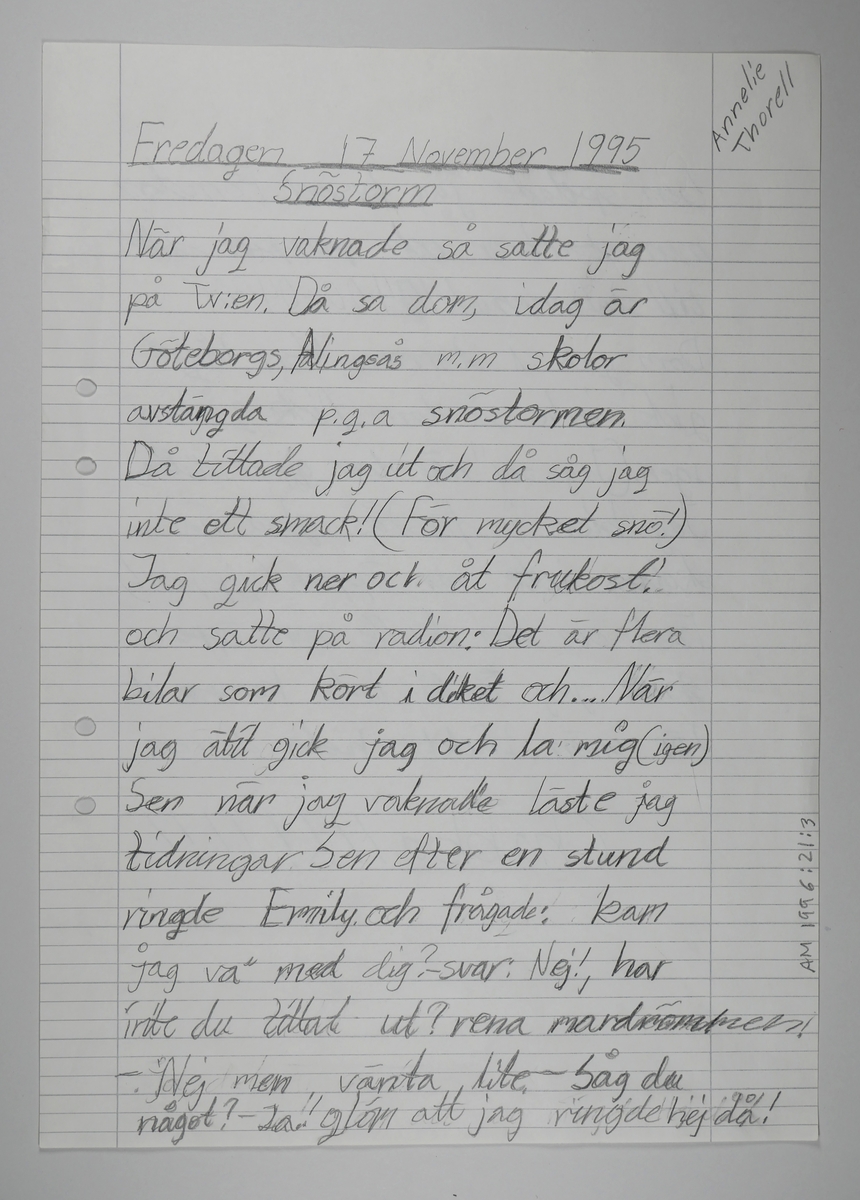 Annelie
Thorell
Fredagen 17 November 1995
Snöstorm
När jag vaknade så satte jag
på Tv:en. Då sa dom, idag är
Göteborgs, Alingsås m.m skolor
avstängda p.g.a snöstormen.
Då tittade jag ut och då såg jag
inte ett smack! (För mycket snö!)
Jag gick ner och åt frukost!
och satte på radion: Det är flera
bilar som kört i diket och... När
jag ätit gick jag och la mig (igen)
Sen när jag vaknade läste jag
tidningar Sen efter en stund
ringde Emily och frågade: kam
jag va" med dig? - svar: Nej!, har
inte du tittat ut? rena mardrömmen!
-. Nej men, vänta lite - Såg du
något? - Ja!! glöm att jag ringde hej då!
AM 1996:21:3